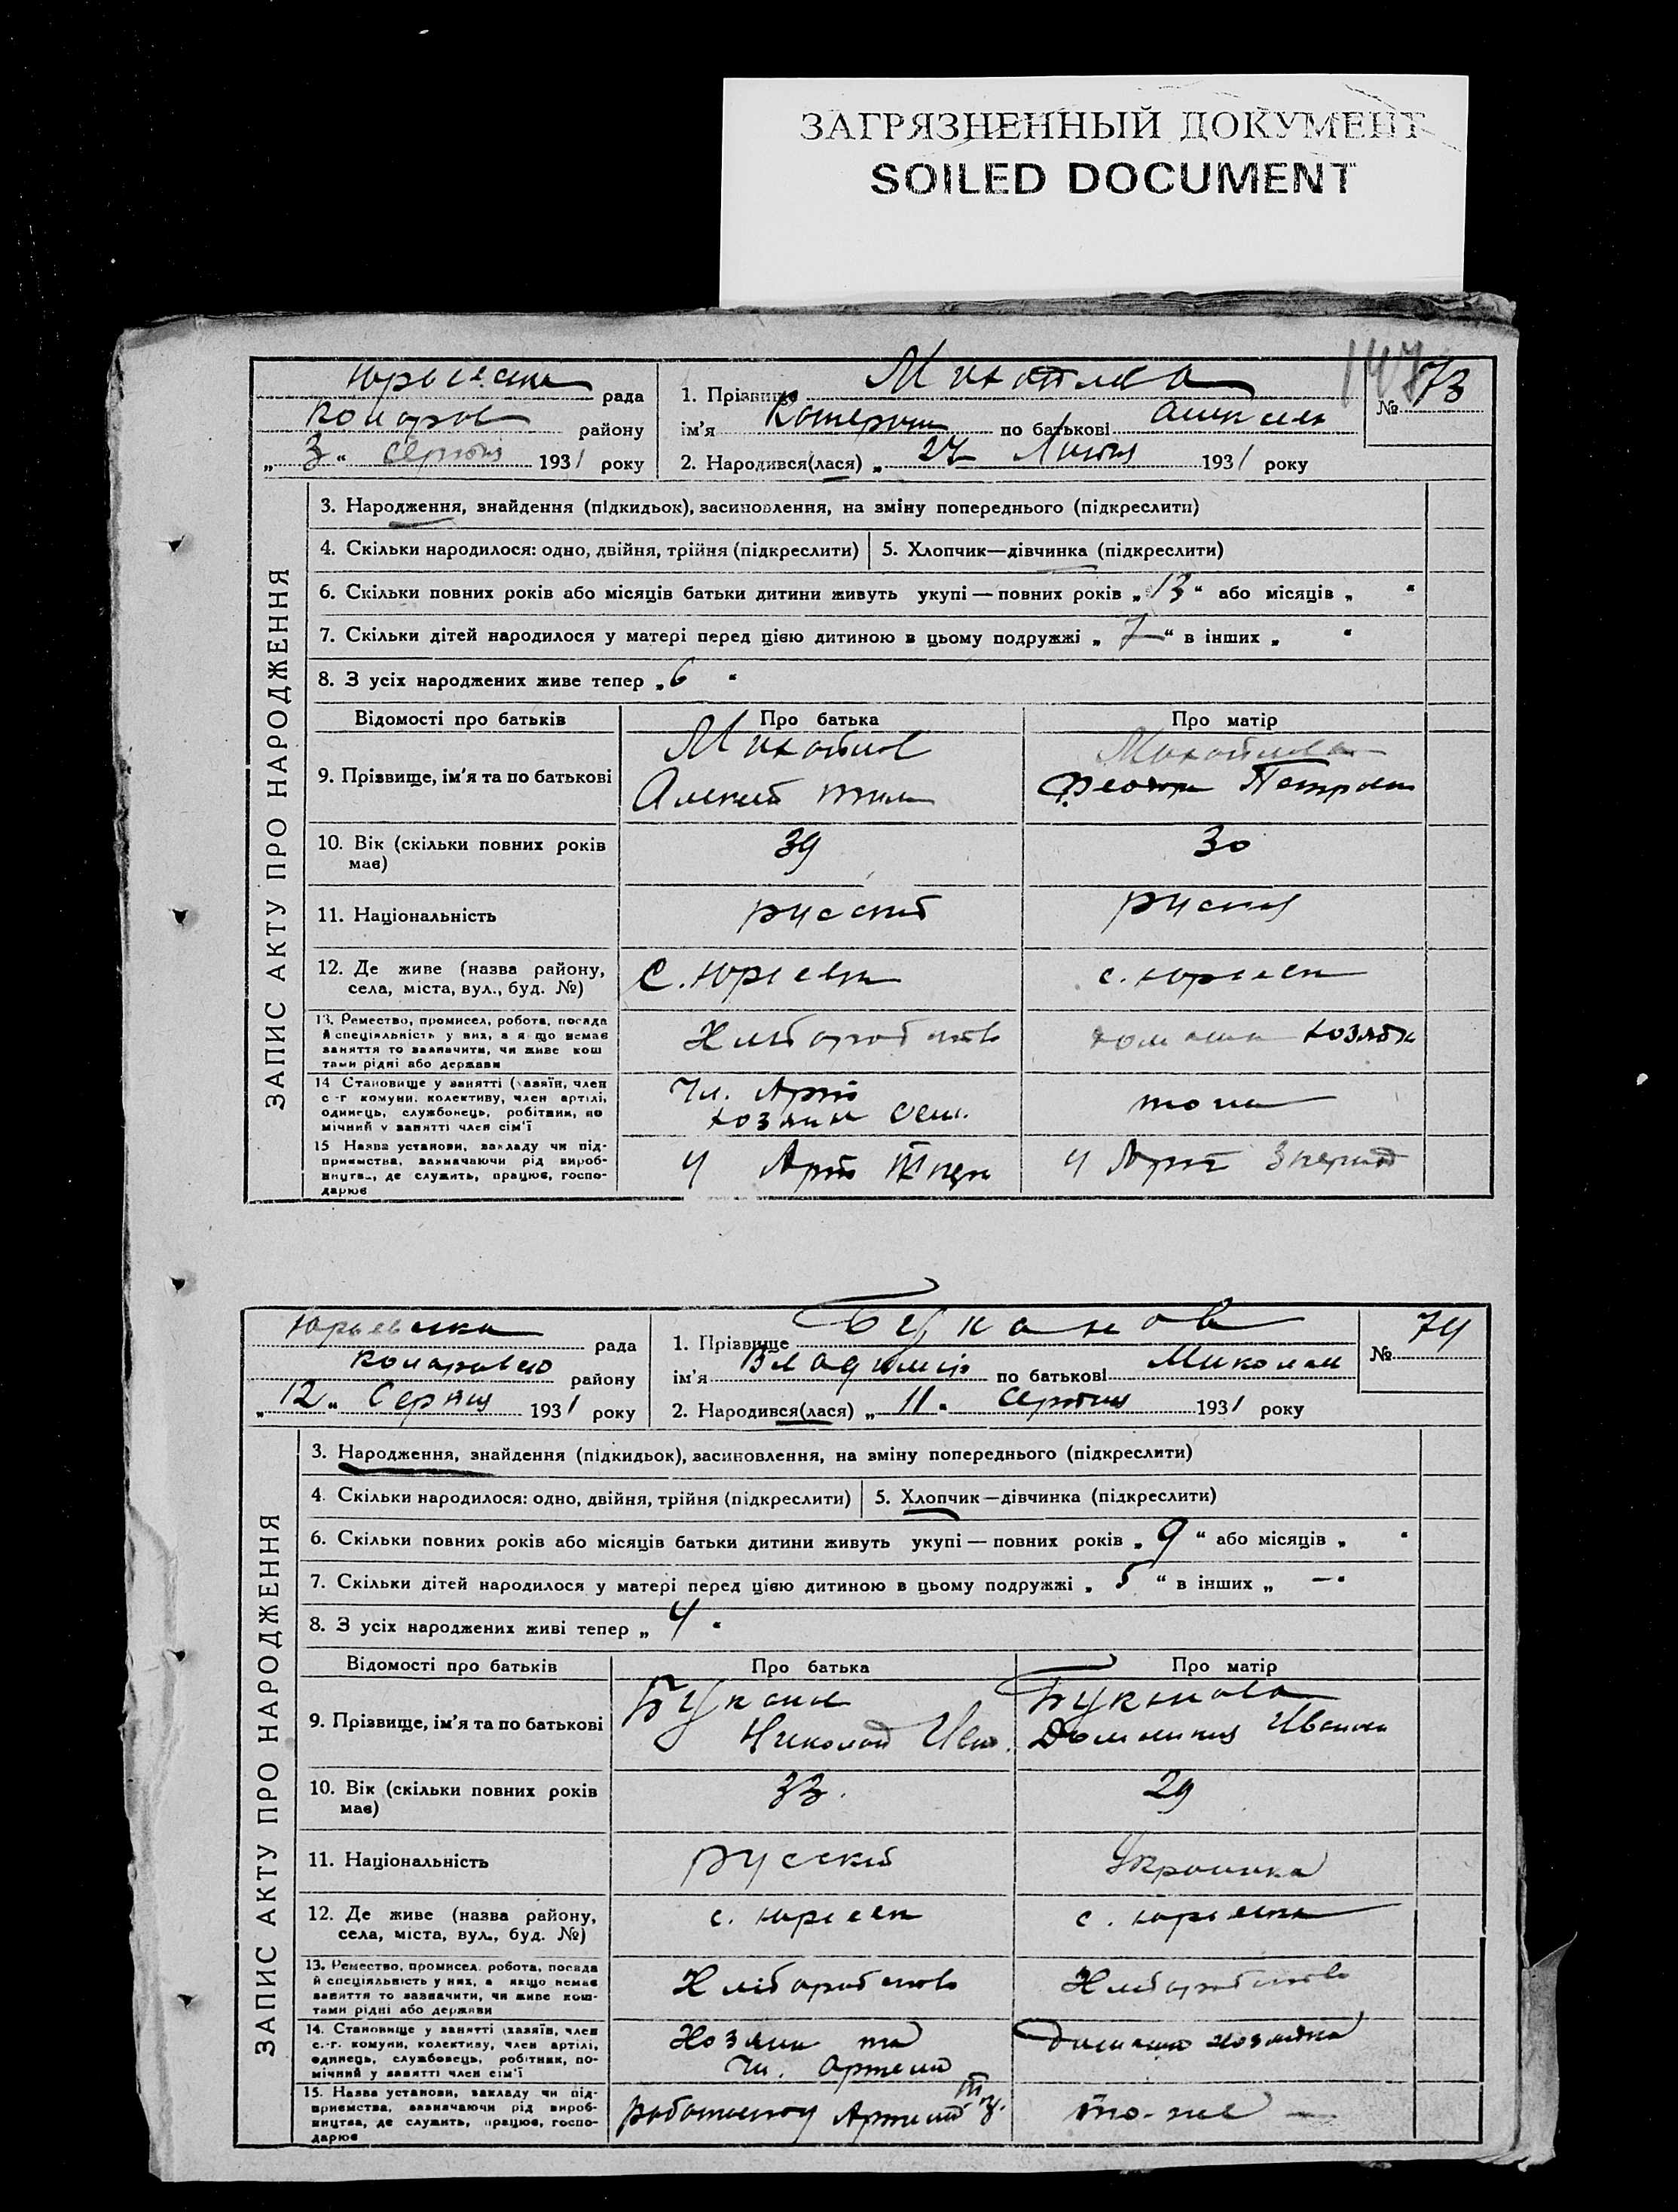 ЗАГРЯЗНЕННЫЙ ДОКУМЕНТ
SOILED DOCUMENT
рада
району
„ 3 “ Серпня 1931 року
1. Прізвище Михайлова
ім'я Катерина по батькові Алексея
2. Народився(лася) „ 27 Липня 1931 року
147
№ 73
ЗАПИС АКТУ ПРО НАРОДЖЕННЯ
3. Народження, знайдення (підкидьок), засиновлення, на зміну попереднього (підкреслити)
4. Скільки народилося: одно, двійня, трійня (підкреслити)
5. Хлопчик—дівчинка (підкреслити)
6. Скільки повних років або місяців батьки дитини живуть укупі — повних років „ 13 “ або місяців „ “
7. Скільки дітей народилося у матері перед цією дитиною в цьому подружжі „ 7 “ в інших „ “
8. З усіх народжених живе тепер „ 6 “
Відомості про батьків
Про батька
Про матір
9. Прізвище, ім'я та по батькові
Михайлов
Алексей
Михайлова
10. Вік (скільки повних років
має)
39
30
11. Національність
русский
руская
12. Де живе (назва району,
села, міста, вул., буд. №)
с.
с.
13. Ремество, промисел, робота, посада
й спеціяльність у них, а якщо немає
заняття то зазначити, чи живе кош
тами рідні або держави
Хліборобство
14 Становище у занятті (хазяїн, член
с.-г комуни, колективу, член артілі,
одинець, службовець, робітник, по
мічний у занятті член сім'ї
Чл. Арт
15 Назва установи, закладу чи під-
приємства, зазначаючи рід вироб-
ництва, де служить, працює, госпо-
дарює
У Арт
У Арт
рада
району
„ 12 „ Серпня 1931 року
1. Прізвище Буканов
ім'я Владимир по батькові Миколай
2. Народився(лася) „ 11 “ Серпня 1931 року
№ 74
ЗАПИС АКТУ ПРО НАРОДЖЕННЯ
3. Народження, знайдення (підкидьок), засиновлення, на зміну попереднього (підкреслити)
4. Скільки народилося: одно, двійня, трійня (підкреслити)
5. Хлопчик—дівчинка (підкреслити)
6. Скільки повних років або місяців батьки дитини живуть укупі — повних років „ 9 “ або місяців „ “
7. Скільки дітей народилося у матері перед цією дитиною в цьому подружжі „ 5 “ в інших „ — “
8. З усіх народжених живі тепер „ 4 “
Відомості про батьків
Про батька
Про матір
9. Прізвище, ім'я та по батькові
Николай Иван.
Буканова
10. Вік (скільки повних років
має)
33.
29
11. Національність
русский
Украинка
12. Де живе (назва району,
села, міста, вул., буд. №)
с.
с.
13. Ремество, промисел, робота, посада
й спеціяльність у них, а якщо немає
заняття то зазначити, чи живе кош-
тами рідні або держави
Хліборобство
Хліборобство
14. Становище у занятті (хазяїн, член
с.-г. комуни, колективу, член артілі,
одинець, службовець, робітник, по-
мічний у занятті член сім'ї
Чл. Артели
15. Назва установи, закладу чи під-
приємства, зазначаючи рід вироб-
ництва, де служить, працює, госпо-
дарює
то-же —